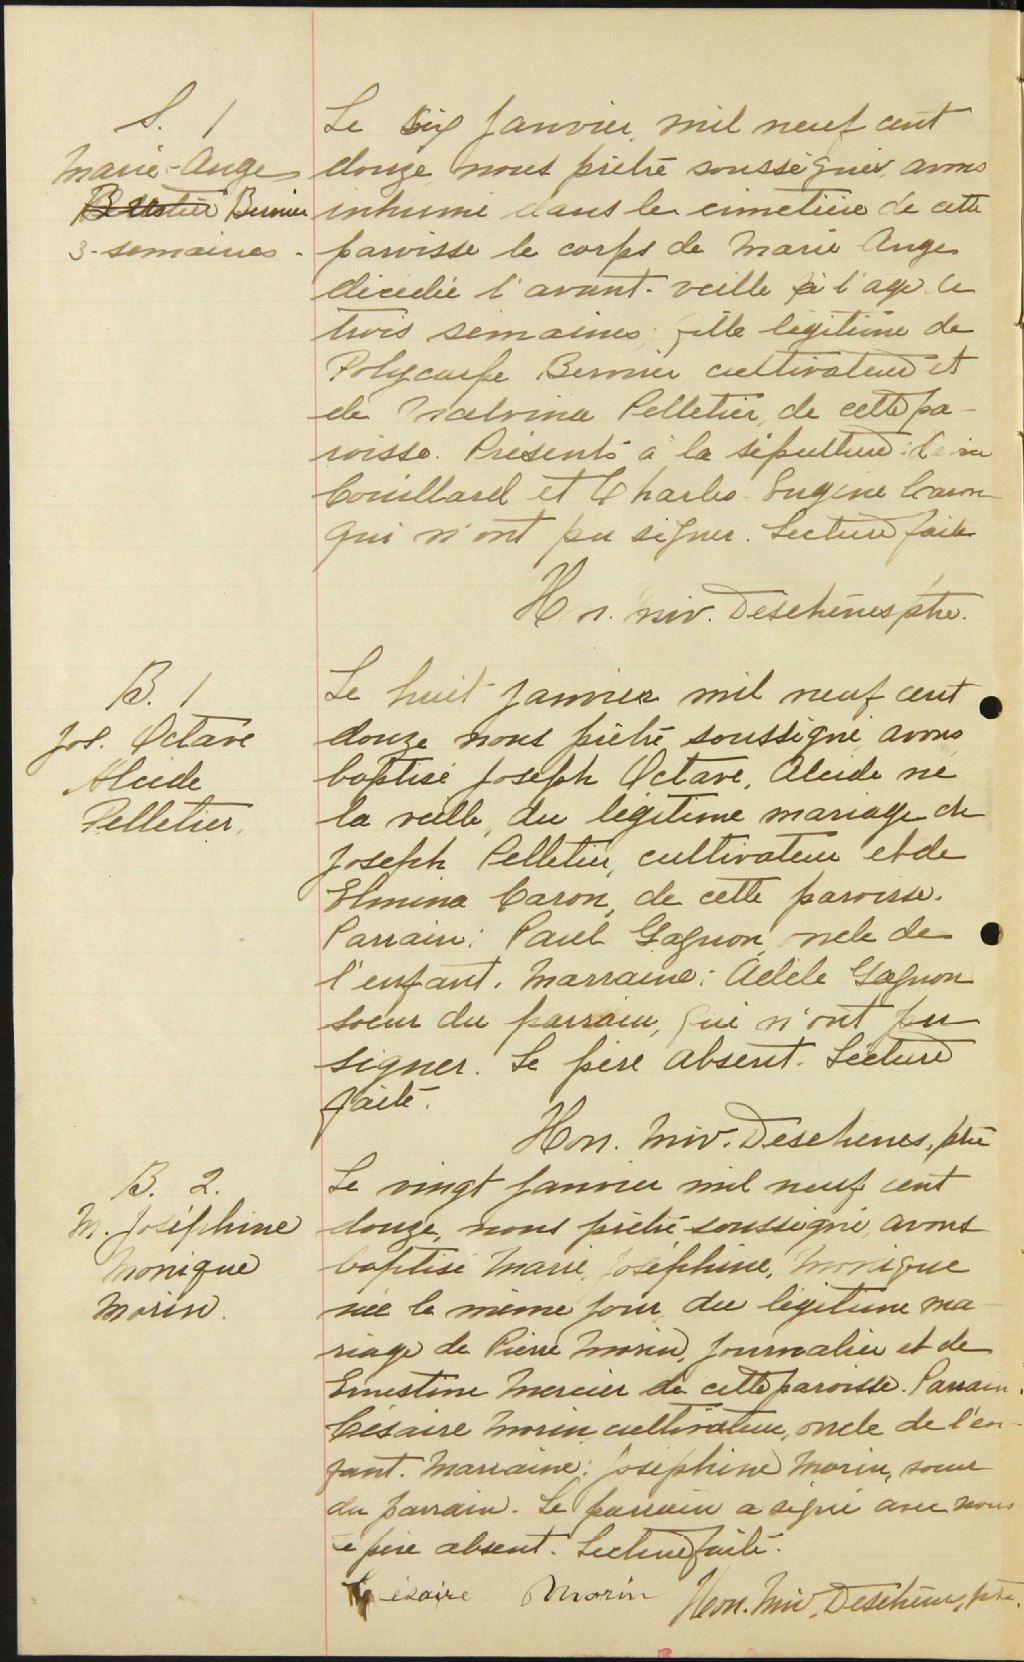 S. 1
Marie-Ange
Bernier
3 semaines.
Le six janvier mil neuf cent
douze nous prêtre soussigné, avons
inhumé dans le cimetière de cette
paroisse le corps de Marie Ange
décédée l'avant-veille à l'age de
trois semaines, fille légitime de
Polycarpe Bernier cultivateur et
de Malvina Pelletier, de cette pa-
roisse. Présents à la sépulture:
Couillard et Charles-Eugène Caron
qui n'ont pu signer. Lecture faite
Hon. Niv. Deschênes ptre.
B. 1
Jos. Octave
Alcide
Pelletier,
Le huit janvier mil neuf cent
douze nous prêtre soussigné avons
baptisé Joseph Octave, Alcide né
la veille, du légitime mariage de
Joseph Pelletier, cultivateur et de
Elmina Caron, de cette paroisse.
Parrain: Paul Gagnon oncle de
l'enfant. Marraine: Adèle Gagnon
soeur du parrain, qui n'ont pu
signer. Le père absent. Lecture
faite.
Hon. Niv. Deschenes, ptre
B. 2.
M. Joséphine
Monique
Morin.
Le vingt janvier mil neuf cent
douze, nous prêtre soussigné, avons
baptisé Marie, Joséphine, Monique
née le même jour, du légitime ma-
riage de Pierre Morin, journalier et de
Ernestine Mercier de cette paroisse. Parrain:
Césaire Morin cultivateur, oncle de l'en-
fant. Marraine: Joséphine Morin, soeur
du parrain. Le parrain a signé avec nous
Le père absent. Lecture faite.
Césaire Morin Hon. Niv. Deschênes, ptre.